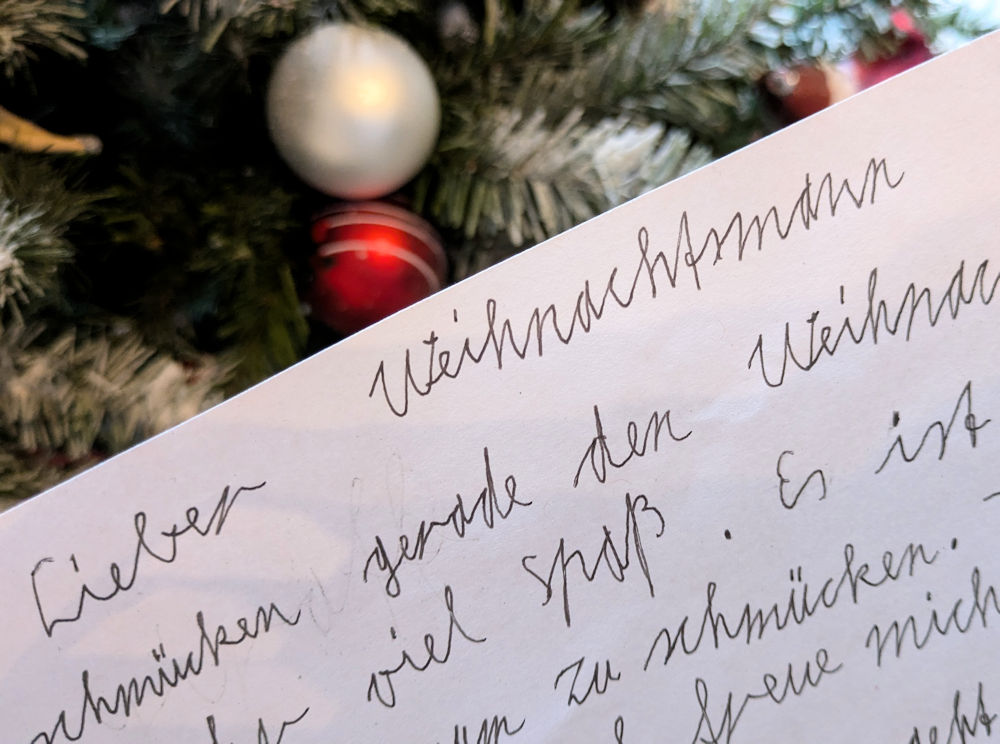 Lieber Weihnachtsmann
schmücken gerade den Weihnac
viel spaß. Es ist
zu schmücken.
freue mich